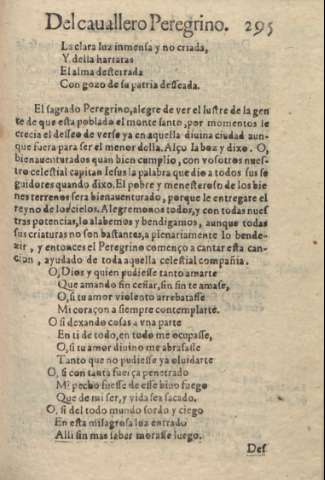 Del cauallero Peregrino. 295
La clara luz inmensa y no criada,
Y della harraras
El alma desterrada
Con gozo de su patria desseada.
El sagrado Peregrino, alegre de ver el lustre de la gen
te de que esta poblado el monte santo, por momentos le
crecia el desseo de verse ya en aquella diuina ciudad aun-
que fuera para ser el menor della. Alço la boz y dixo. O,
bienauenturados quan bien cumplio, con vosotros nues-
tro celestial capitan Iesus la palabra que dio a todos sus se
guidores quando dixo. El pobre y menesteroso de los bie
nes terrenos sera bienauenturado, porque le entregare el
reyno de los cielos. Alegremonos todos, y con todas nues
tras potencias, lo alabemos y bendigamos, aunque todas
sus criaturas no son bastantes, a plenariamente lo bende-
zir, y entonces el Peregrino començo a cantar esta can-
cion, ayudado de toda aquella celestial compañia.
O, Dios y quien pudiesse tanto amarte
Que amando sin cessar, sin fin te amase,
O, si tu amor violento arrebatasse
Mi coraçon a siempre contemplarte.
O si dexando cosas a vna parte
En ti de todo, en todo me ocupasse,
O, si tu amor diuino me abrasasse
Tanto que no pudiesse ya oluidarte
O, si con tanta fuerça penetrado
Mi pecho fuesse de esse biuo fuego
Que de mi ser, y vida sea sacado.
O, si del todo mundo sordo y ciego
En esta milagrosa luz entrado
Alli sin mas saber morasse luego.
Des